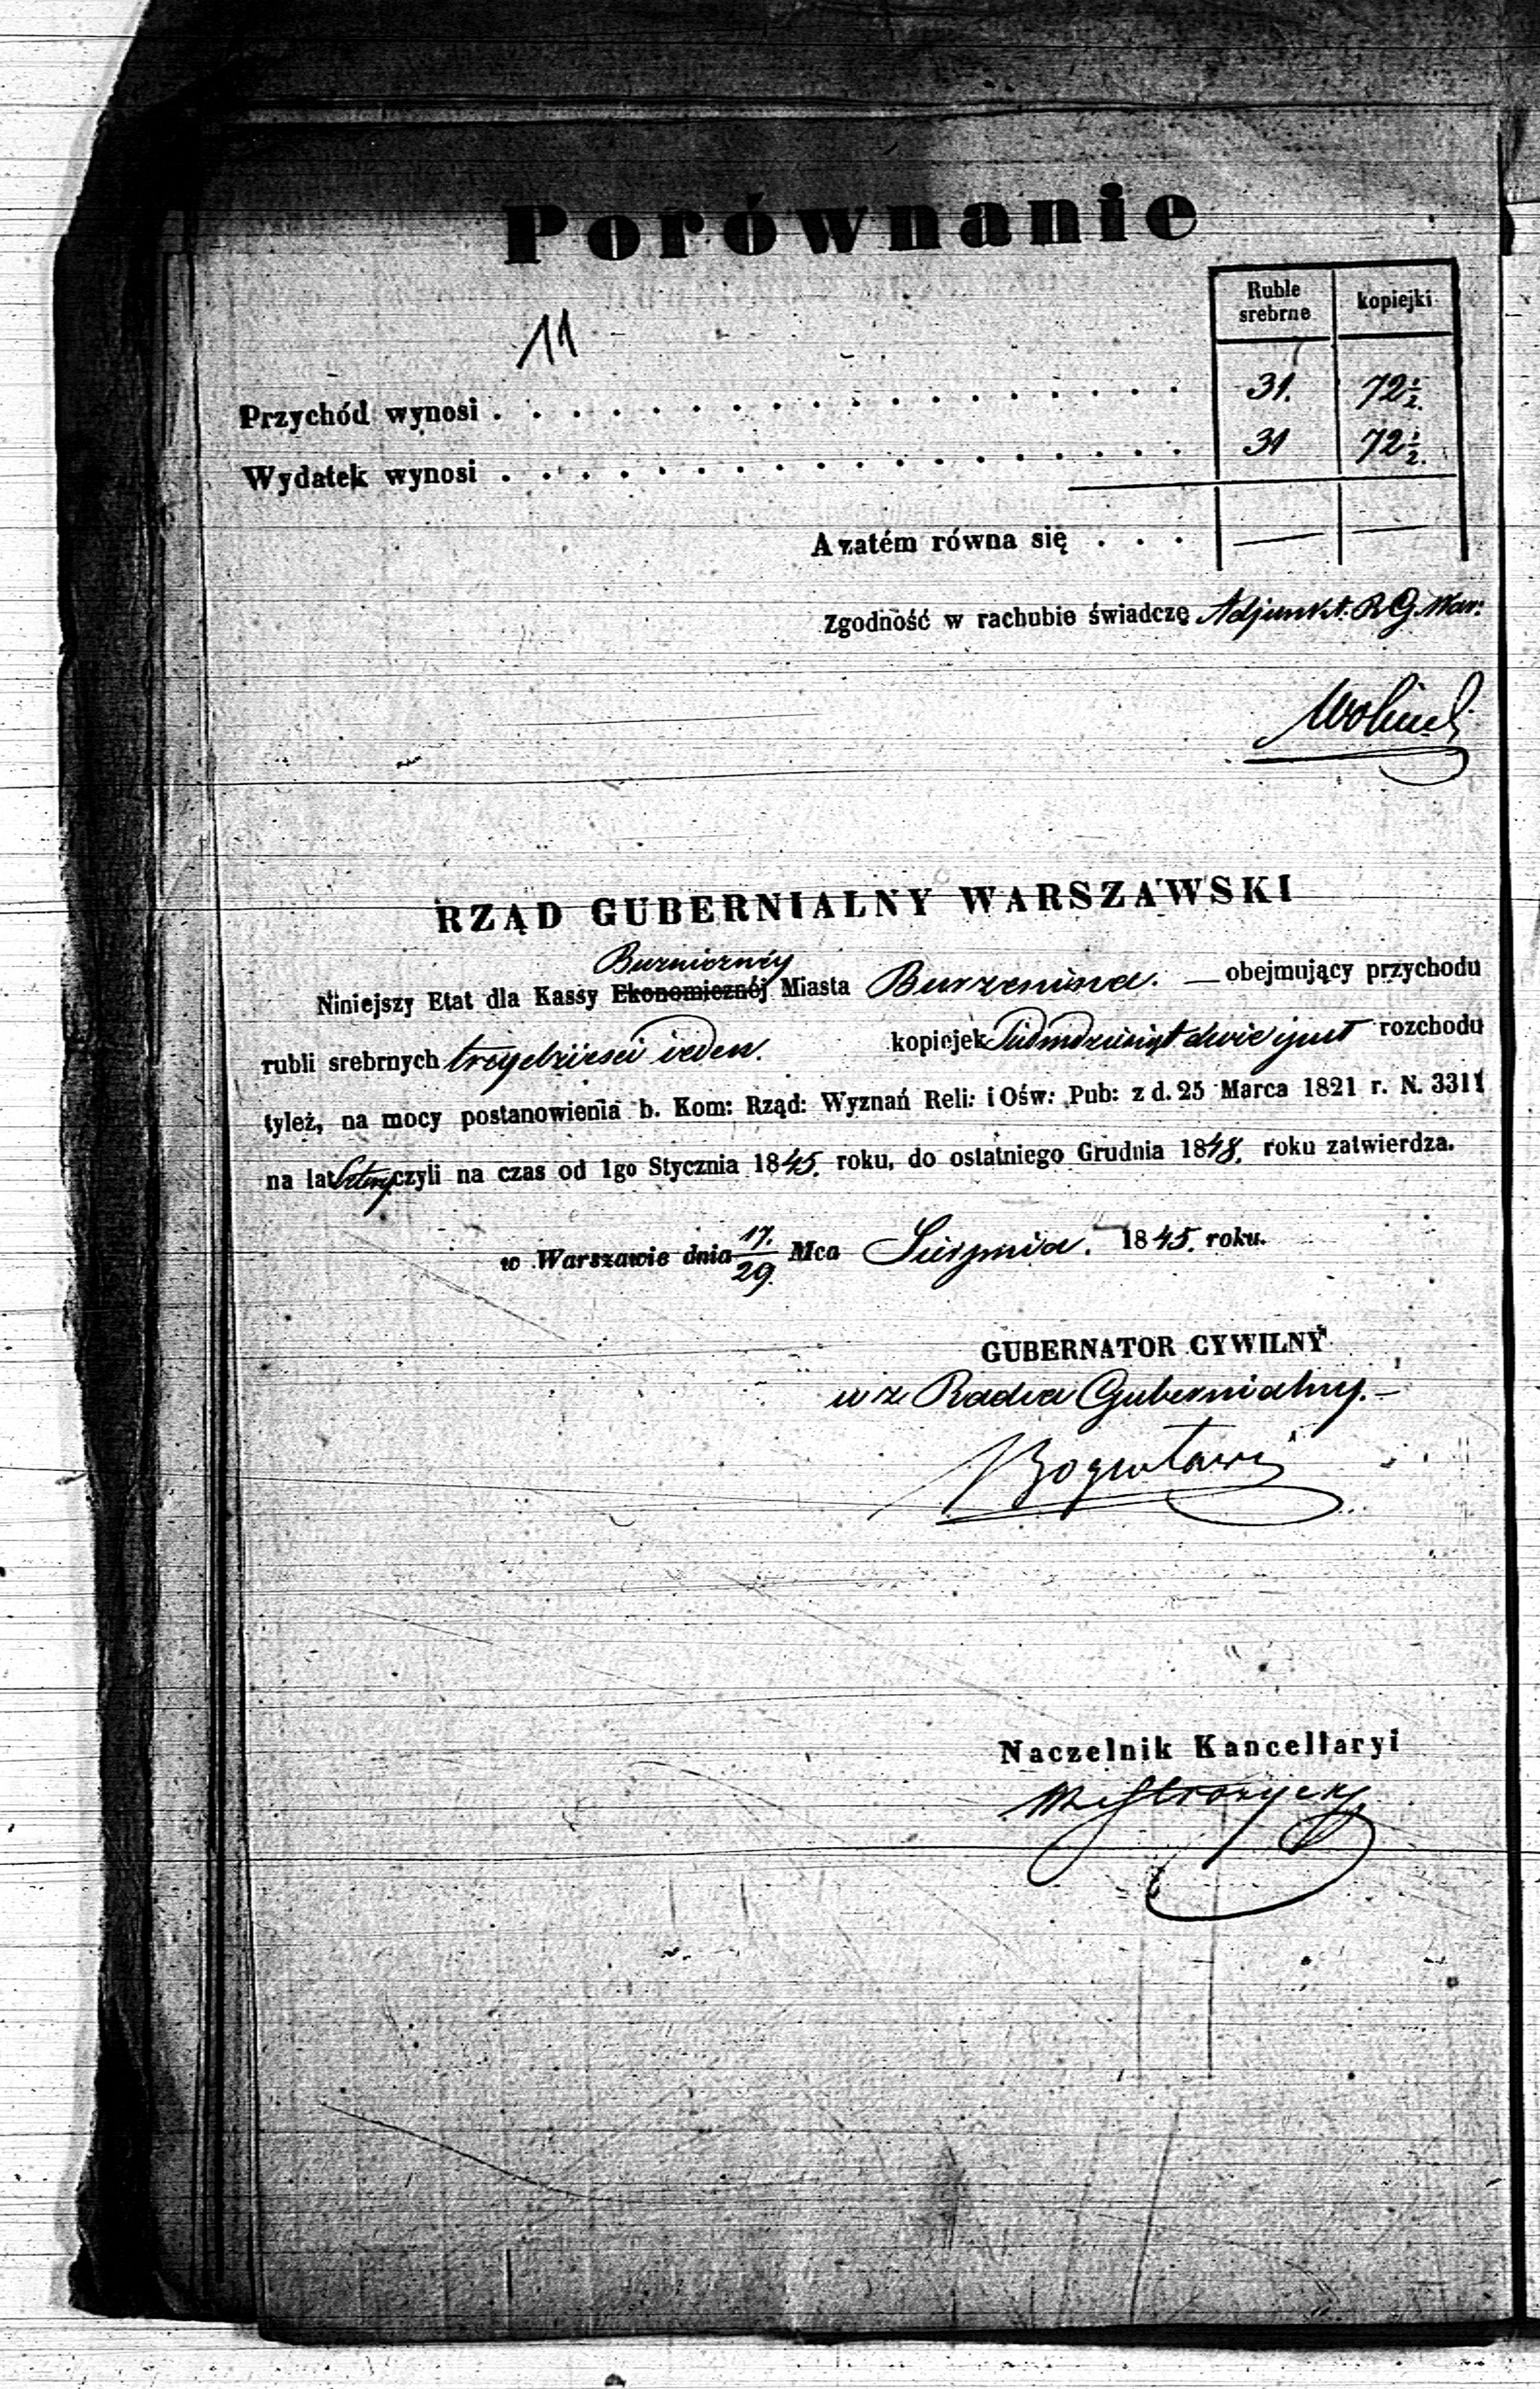 Porównanie
Ruble srebrne kopiejki
11
Przychód wynosi . . . . . . . . . . . . . . . . . . 31. 72½.
Wydatek wynosi . . . . . . . . . . . . . . . . . . 31 72½.
A zatém równa się . . . — —
Zgodność w rachubie świadczę Adjunkt. R G. War:
RZĄD GUBERNIALNY WARSZAWSKI
Bużnicznéy
Niniejszy Etat dla Kassy Ekonomicznéj Miasta Burzenina. — obejmujący przychodu
rubli srebrnych trzydzieści ieden. kopiejek Siedmdziesiąt dwie i pół rozchodu
tyleż, na mocy postanowienia b. Kom: Rząd: Wyznań Reli: i Ośw: Pub: z d. 25 Marca 1821 r. N. 3311
na lat cztery czyli na czas od 1go Stycznia 1845. roku, do ostatniego Grudnia 1848. roku zatwierdza.
w Warszawie dnia 17./29. Mca Sierpnia. 1845. roku.
GUBERNATOR CYWILNY
w z. Radca Gubernialny. —
Naczelnik Kancellaryi